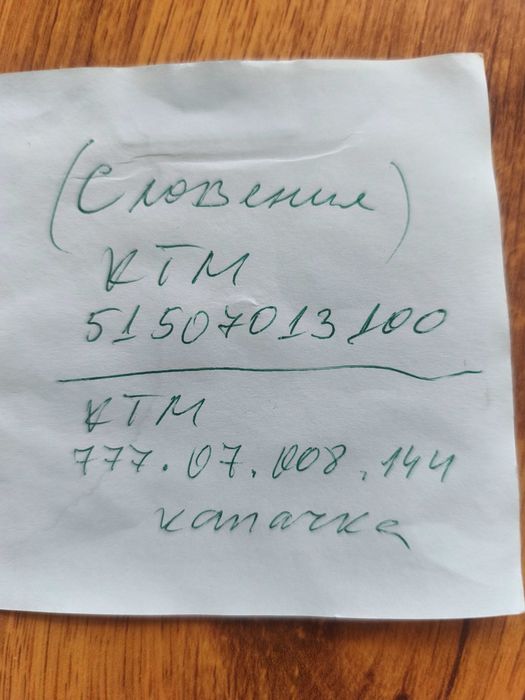 (Словения)
КТМ
51507013100
КТМ
777.07.008.144
капачка